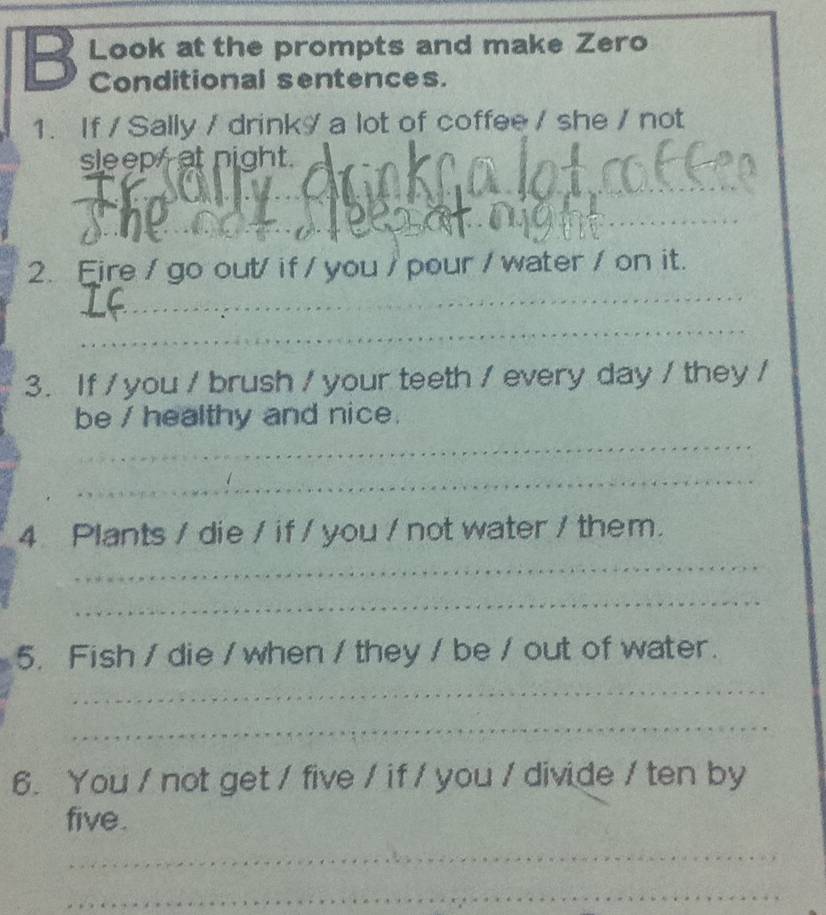 B Look at the prompts and make Zero
Conditional sentences.
1. If / Sally / drinks/ a lot of coffee / she / not
sleep/ at night.
If Sally drinks a lot coffee
She not sleep at night
2. Fire / go out/ if / you / pour / water / on it.
If
3. If / you / brush / your teeth / every day / they /
be / healthy and nice.
4 Plants / die / if / you / not water / them.
5. Fish / die / when / they / be / out of water.
6. You / not get / five / if / you / divide / ten by
five.